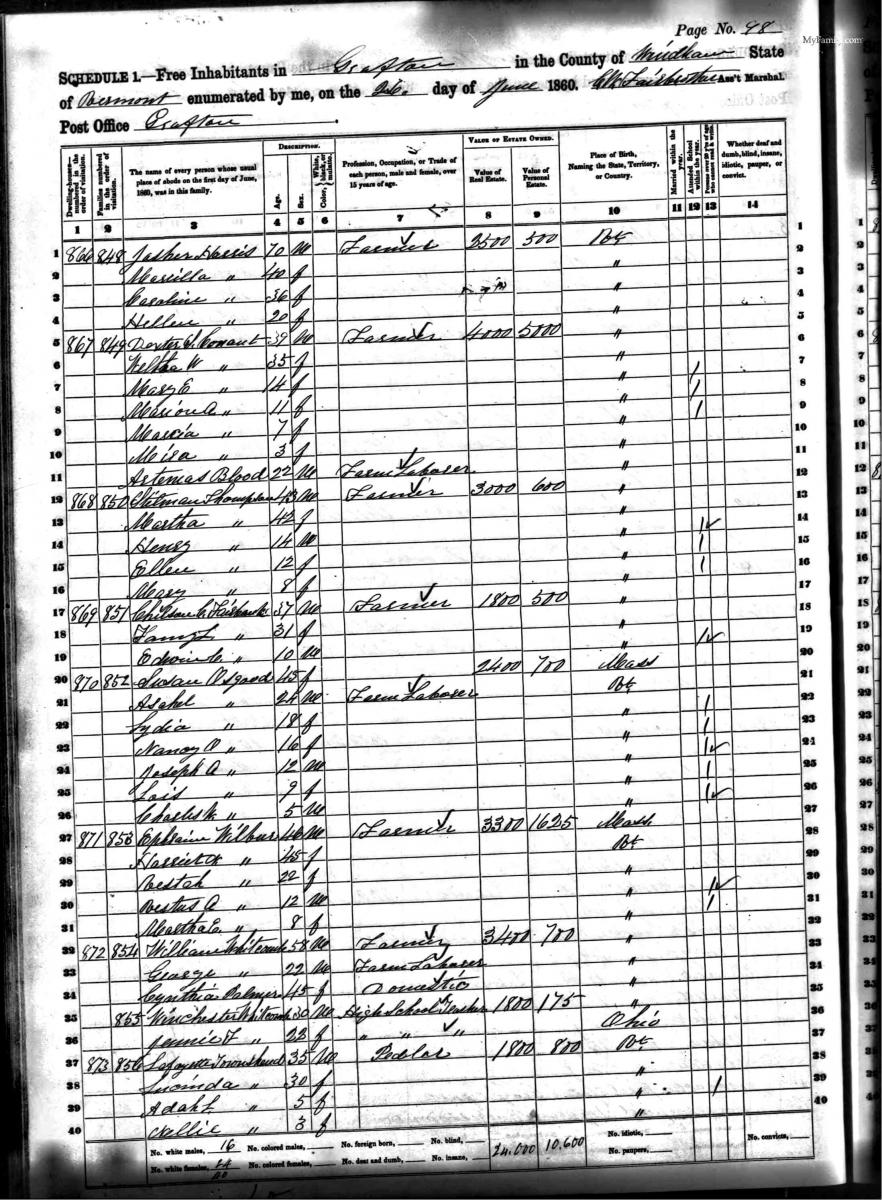 Page No. 98
MyFamily.com
SCHEDULE 1.—Free Inhabitants in Grafton in the County of Windham State
of Vermont enumerated by me, on the 26. day of June 1860. Fairbrother Ass't Marshal.
Post Office Grafton
DESCRIPTION. VALUE OF ESTATE OWNED.
Dwelling-houses—numbered in the order of visitation. Families numbered in the order of visitation. The name of every person whose usual place of abode on the first day of June, 1860, was in this family. Age. Sex. Color, White, black, or mulatto. Profession, Occupation, or Trade of each person, male and female, over 15 years of age. Value of Real Estate. Value of Personal Estate. Place of Birth, Naming the State, Territory, or Country. Married within the year. Attended School within the year. Persons over 20 y'rs of age who cannot read & write. Whether deaf and dumb, blind, insane, idiotic, pauper, or convict.
1 2 3 4 5 6 7 8 9 10 11 12 13 14
1 866 848 Jasher Harris 70 m Farmer 2500 500 Vt 1
2 Marcilla " 40 f " 2
3 Caroline " 36 f " 3
4 Hellen " 20 f " 4
5 867 849 Dexter Conant 39 m Farmer 4000 5000 " 5
6 Weltha W " 35 f " 6
7 Mary E " 14 f " 1 7
8 Marion A " 11 f " 1 8
9 Marcia " 7 f " 1 9
10 Mira " 3 f " 10
11 Artemas Blood 22 m Farm Laborer " 11
12 868 850 Stilman Thompson 43 m Farmer 3000 600 " 12
13 Martha " 42 f " 13
14 Henry " 14 m " 1 14
15 Ellen " 12 f " 1 15
16 Mary " 8 f " 1 16
17 869 851 Chilson Fairbanks 37 m Farmer 1800 500 " 17
18 Fanny L " 31 f " 18
19 Edwin C " 10 m " 1 19
20 870 852 Susan Osgood 45 f 2400 700 Mass 20
21 Asahel " 24 m Farm Laborer Vt 21
22 Lydia " 18 f " 1 22
23 Nancy O " 16 f " 1 23
24 Joseph A " 12 m " 1 24
25 Lois " 9 f " 1 25
26 Charles W " 5 m " 1 26
27 871 853 Ephraim Wilbur 46 m Farmer 3300 1625 Mass 27
28 Harriet " 45 f Vt 28
29 Vestah " 22 f " 29
30 Vestus A " 12 m " 1 30
31 Martha E " 8 f " 1 31
32 872 854 William Whitcomb 58 m Farmer 3400 700 " 32
33 George " 22 m Farm Laborer " 33
34 Cynthia Palmer 45 f Domestic " 34
35 855 Winchester Whitcomb 30 m High School Teacher 1800 175 " 35
36 Jennie F " 23 f " " " Ohio 36
37 873 856 Lafayette Townshend 35 m Pedlar 1800 800 Vt 37
38 Lucinda " 30 f " 38
39 Adah L " 5 f " 1 39
40 Nellie " 3 f " 40
No. white males, 16 No. colored males, No. foreign born, No. blind, 24,000 10,600 No. idiotic, No. convicts,
No. white females, 24 No. colored females, No. deaf and dumb, No. insane, No. paupers,
40